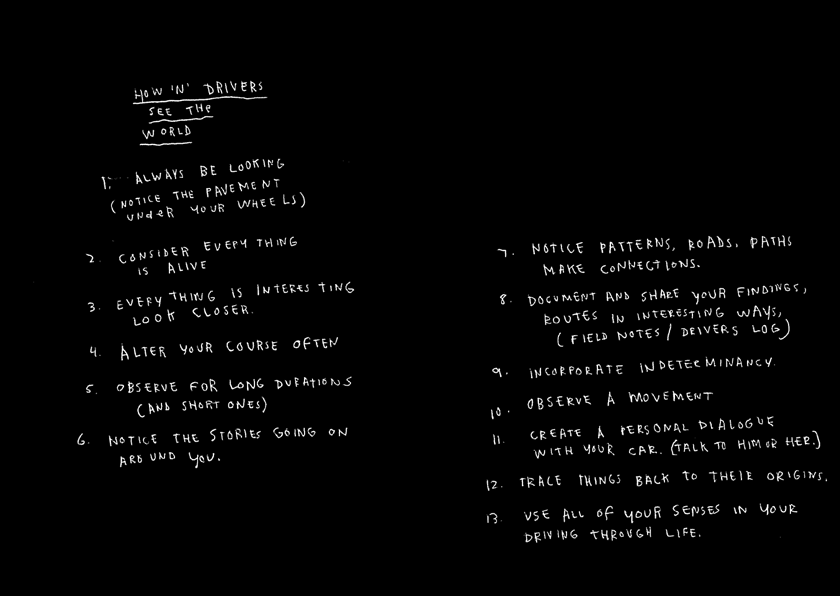 HOW 'N' DRIVERS
SEE THE
WORLD
1. ALWAYS BE LOOKING
(NOTICE THE PAVEMENT
UNDER YOUR WHEELS)
2. CONSIDER EVERYTHING
IS ALIVE
3. EVERYTHING IS INTERESTING
LOOK CLOSER.
4. ALTER YOUR COURSE OFTEN
5. OBSERVE FOR LONG DURATIONS
(AND SHORT ONES)
6. NOTICE THE STORIES GOING ON
AROUND YOU.
7. NOTICE PATTERNS, ROADS, PATHS
MAKE CONNECTIONS.
8. DOCUMENT AND SHARE YOUR FINDINGS,
ROUTES IN INTERESTING WAYS,
(FIELD NOTES / DRIVERS LOG)
9. INCORPORATE INDETERMINANCY.
10. OBSERVE A MOVEMENT
11. CREATE A PERSONAL DIALOGUE
WITH YOUR CAR. (TALK TO HIM OR HER.)
12. TRACE THINGS BACK TO THEIR ORIGINS.
13. USE ALL OF YOUR SENSES IN YOUR
DRIVING THROUGH LIFE.